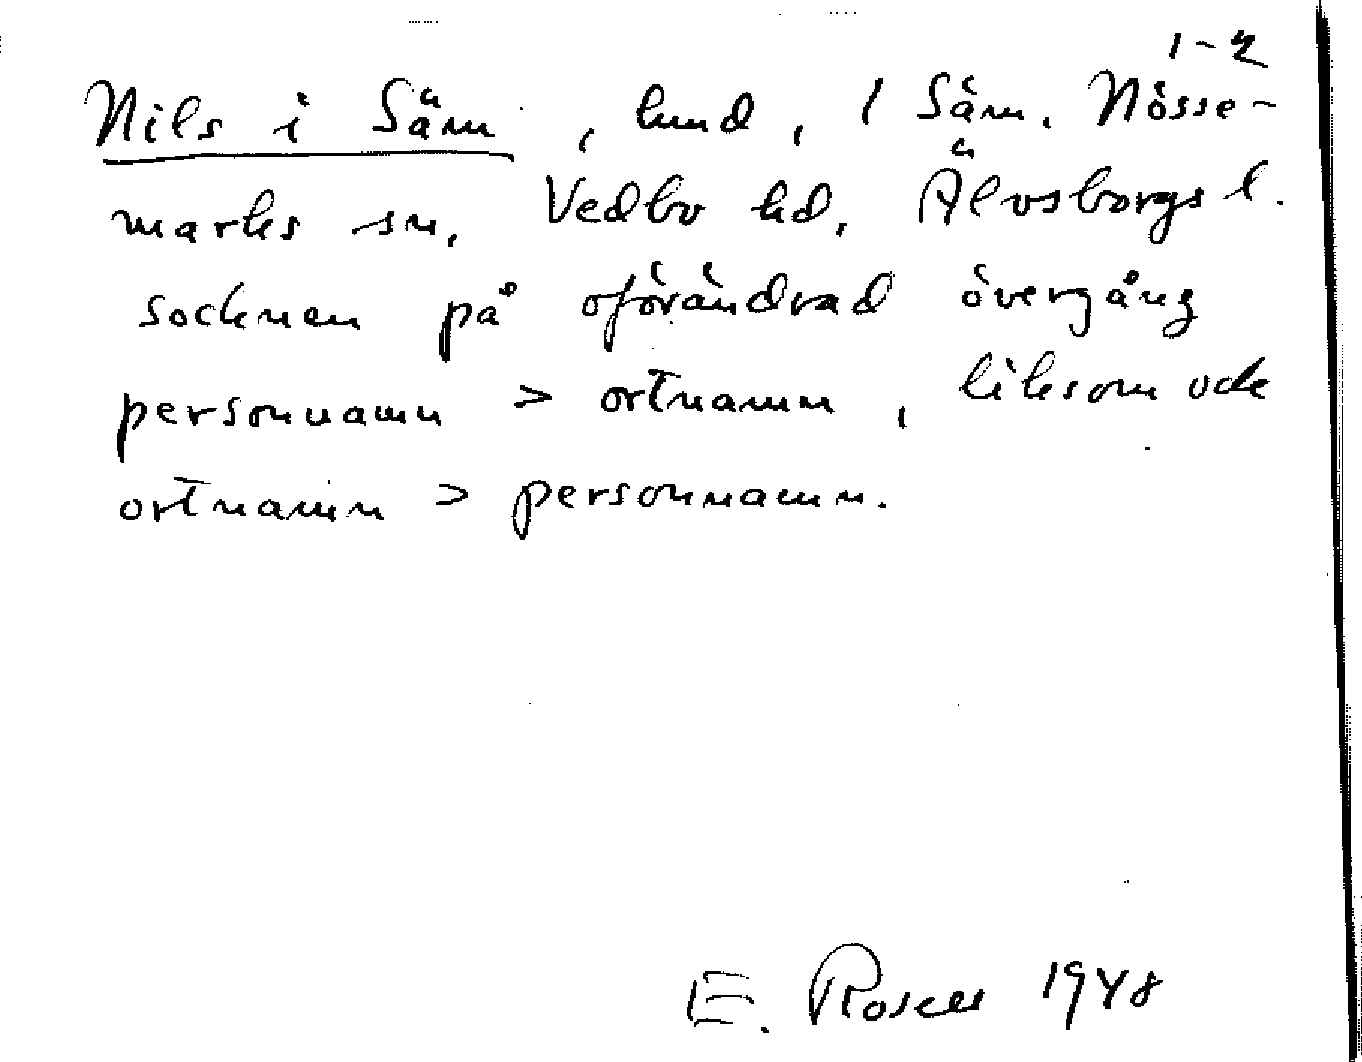 1-2
Nils i Säm, lmd, 1 Säm. Nösse-
marks sn, Vedbo hd, Älvsborgs l.
socknen på oförändrad övergång
personnamn > ortnamn, liksom ock
ortnamn > personnamn.
E. Rosell 1948